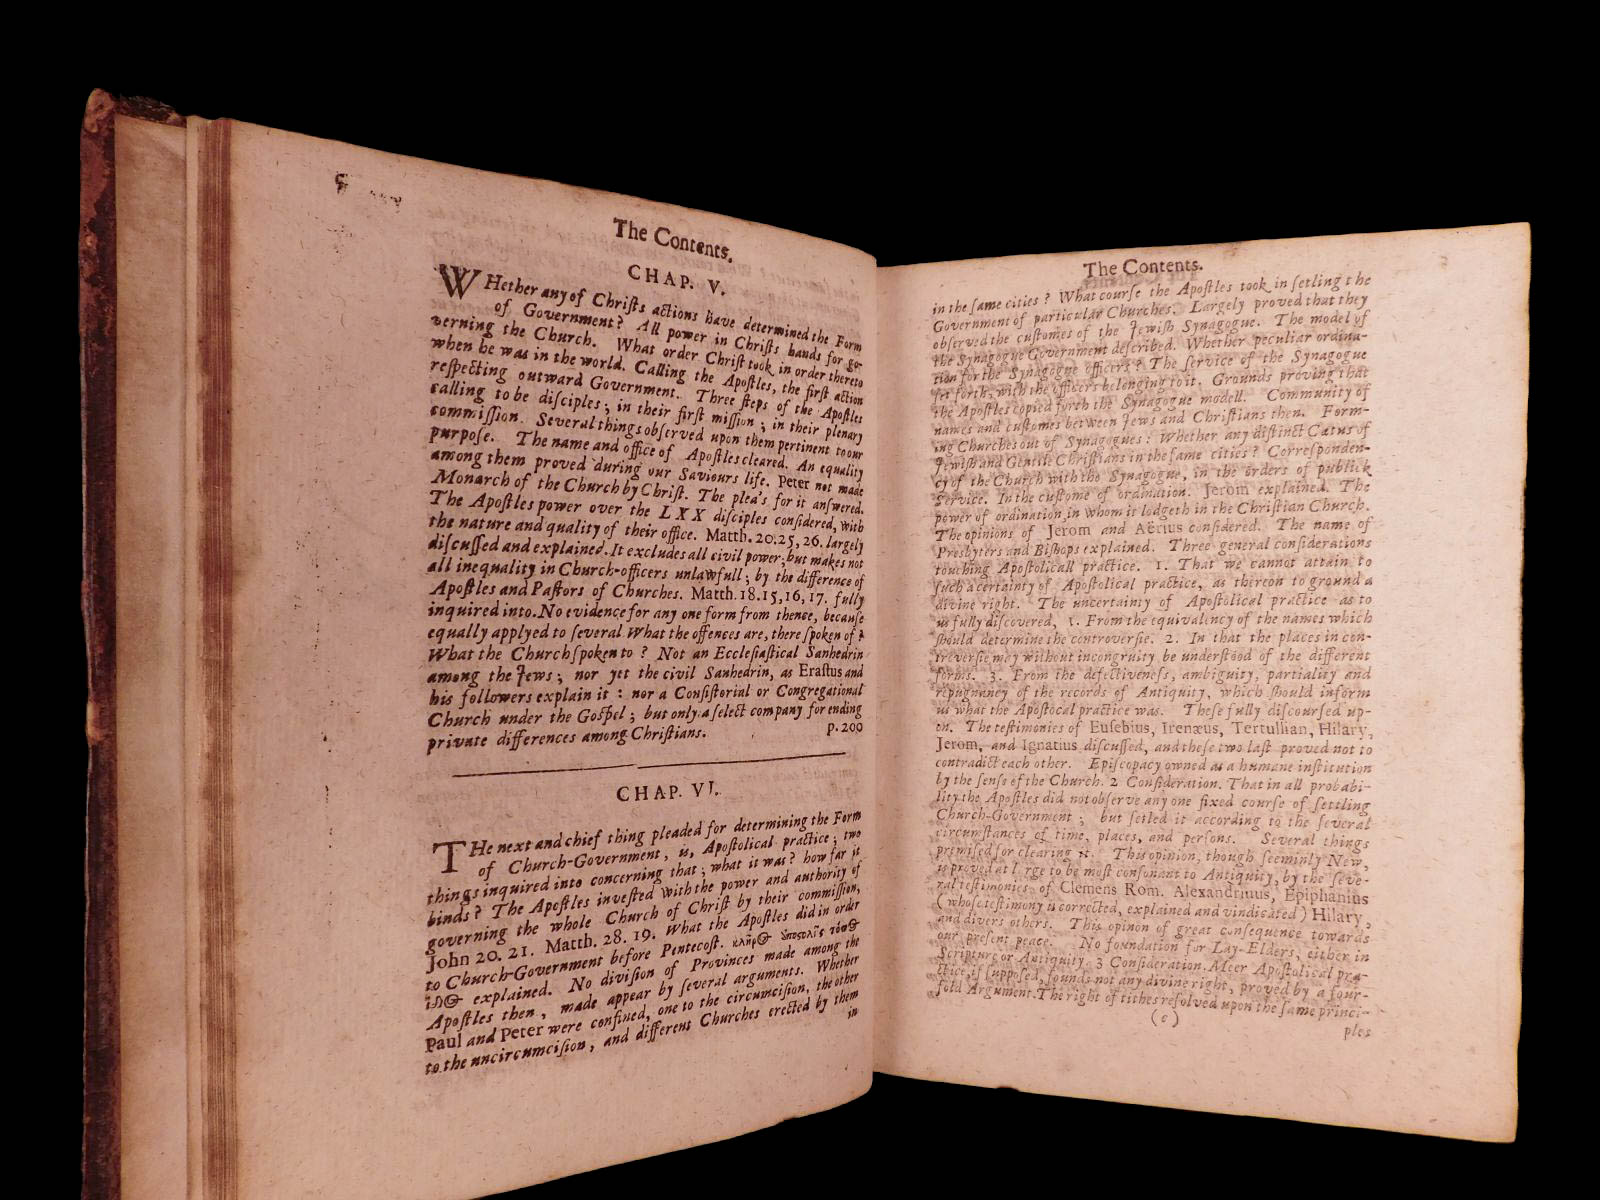 The Contents.
CHAP. V.
WHether any of Chriſts actions have determined the Form
of Government? All power in Chriſts hands for go-
verning the Church. What order Chriſt took in order thereto
when he was in the world. Calling the Apoſtles, the firſt action
reſpecting outward Government. Three ſteps of the Apoſtles
calling to be diſciples; in their firſt miſſion; in their plenary
commiſſion. Several things obſerved upon them pertinent to our
purpoſe. The name and office of Apoſtles cleared. An equality
among them proved during our Saviours life. Peter not made
Monarch of the Church by Chriſt. The plea's for it anſwered.
The Apoſtles power over the LXX diſciples conſidered, with
the nature and quality of their office. Matth. 20. 25, 26. largely
diſcuſſed and explained. It excludes all civil power; but makes not
all inequality in Church-officers unlawfull; by the difference of
Apoſtles and Paſtors of Churches. Matth. 18. 15, 16, 17. fully
inquired into. No evidence for any one form from thence, becauſe
equally applyed to ſeveral. What the offences are, there ſpoken of?
What the Church ſpoken to? Not an Eccleſiaſtical Sanhedrin
among the Jews; nor yet the civil Sanhedrin, as Eraſtus and
his followers explain it: nor a Conſiſtorial or Congregational
Church under the Goſpel; but only a ſelect company for ending
private differences among Chriſtians. p. 200
CHAP. VI.
THe next and chief thing pleaded for determining the Form
of Church-Government, is, Apoſtolical practice; two
things inquired into concerning that; what it was? how far it
binds? The Apoſtles inveſted with the power and authority of
governing the whole Church of Chriſt by their commiſſion,
John 20. 21. Matth. 28. 19. What the Apoſtles did in order
to Church-Government before Pentecoſt.
explained. No diviſion of Provinces made among the
Apoſtles then, made appear by ſeveral arguments. Whether
Paul and Peter were confined, one to the circumciſion, the other
to the uncircumciſion, and different Churches erected by them
in
The Contents.
in the ſame cities? What courſe the Apoſtles took in ſetling the
Government of particular Churches. Largely proved that they
obſerved the cuſtomes of the Jewiſh Synagogue. The model of
the Synagogue Government deſcribed. Whether peculiar ordina-
tion for the Synagogue officers? The ſervice of the Synagogue
ſet forth, with the officers belonging to it. Grounds proving that
the Apoſtles copied forth the Synagogue modell. Community of
names and cuſtomes between Jews and Chriſtians then. Form-
ing Churches out of Synagogues: Whether any diſtinct Cœtus of
Jewiſh and Gentile Chriſtians in the ſame cities? Correſponden-
cy of the Church with the Synagogue, in the orders of publick
Service. In the cuſtome of ordination. Jerom explained. The
power of ordination, in whom it lodgeth in the Chriſtian Church.
The opinions of Jerom and Aërius conſidered. The name of
Presbyters and Biſhops explained. Three general conſiderations
touching Apoſtolicall practice. 1. That we cannot attain to
ſuch a certainty of Apoſtolical practice, as thereon to ground a
divine right. The uncertainty of Apoſtolical practice as to
us fully diſcovered, 1. From the equivalency of the names which
ſhould determine the controverſie. 2. In that the places in con-
troverſie may without incongruity be underſtood of the different
forms. 3. From the defectiveneſs, ambiguity, partiality and
repugnancy of the records of Antiquity, which ſhould inform
us what the Apoſtocal practice was. Theſe fully diſcourſed up-
on. The teſtimonies of Euſebius, Irenæus, Tertullian, Hilary,
Jerom, and Ignatius diſcuſſed, and theſe two laſt proved not to
contradict each other. Epiſcopacy owned as a humane inſtitution
by the ſenſe of the Church. 2 Conſideration. That in all probabi-
lity the Apoſtles did not obſerve any one fixed courſe of ſettling
Church-Government; but ſetled it according to the ſeveral
circumſtances of time, places, and perſons. Several things
premiſed for clearing it. This opinion, though ſeeminly New,
is proved at large to be moſt conſonant to Antiquity, by the ſeve-
ral teſtimonies of Clemens Rom. Alexandrinus, Epiphanius
(whoſe teſtimony is corrected, explained and vindicated) Hilary,
and divers others. This opinion of great conſequence towards
our preſent peace. No foundation for Lay-Elders, either in
Scripture or Antiquity. 3 Conſideration. Meer Apoſtolical pra-
ctice, if ſuppoſed, founds not any divine right, proved by a four-
fold Argument. The right of tithes reſolved upon the ſame princi-
(e)
ples